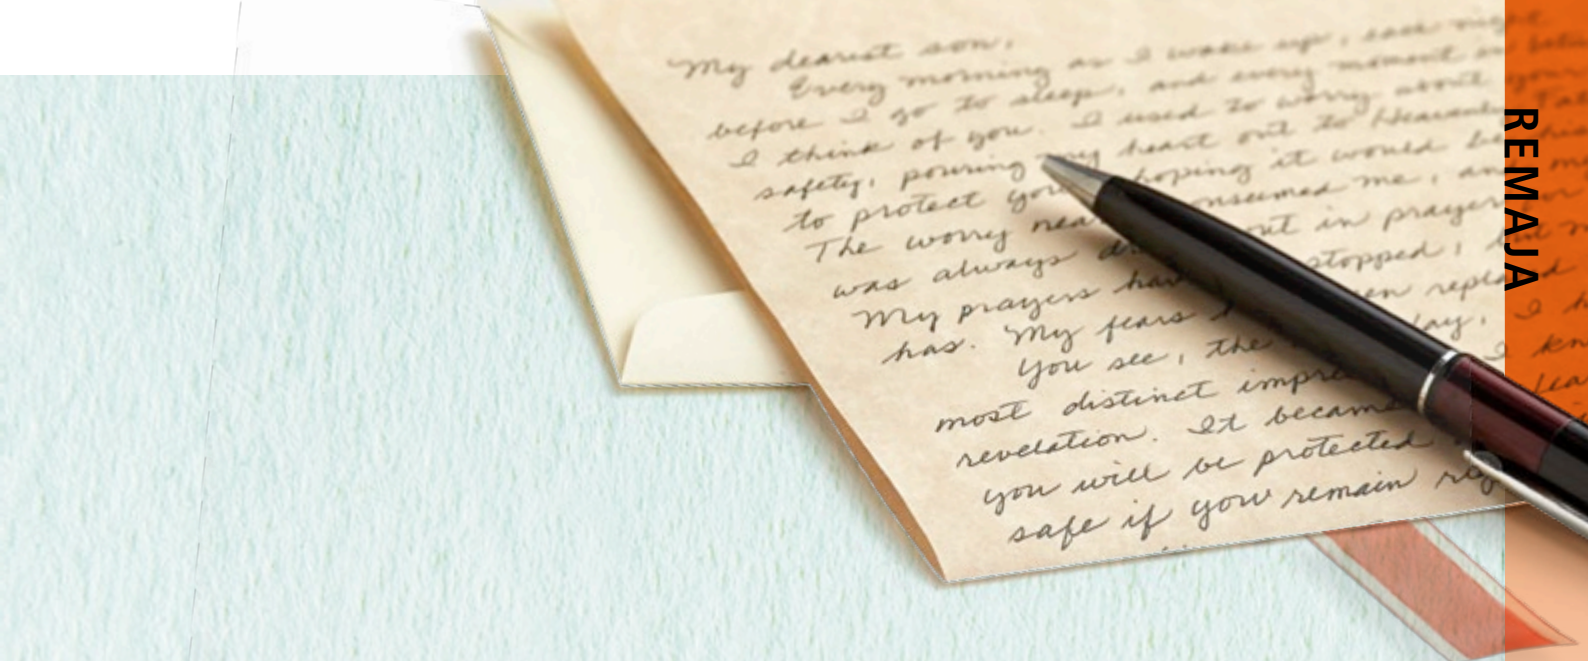 My dearest son,
Every morning as I wake up, each night
before I go to sleep, and every moment in
I think of you. I used to worry about your
safety, pouring my heart out to Heavenly
to protect you, hoping it would be
The worry nea consumed me, and
was always d out in prayer
My prayers hav stopped, but
has. My fears en replaced
You see, the day, I
most distinct impre I kn
revelation. It became
you will be protected
safe if you remain
REMAJA